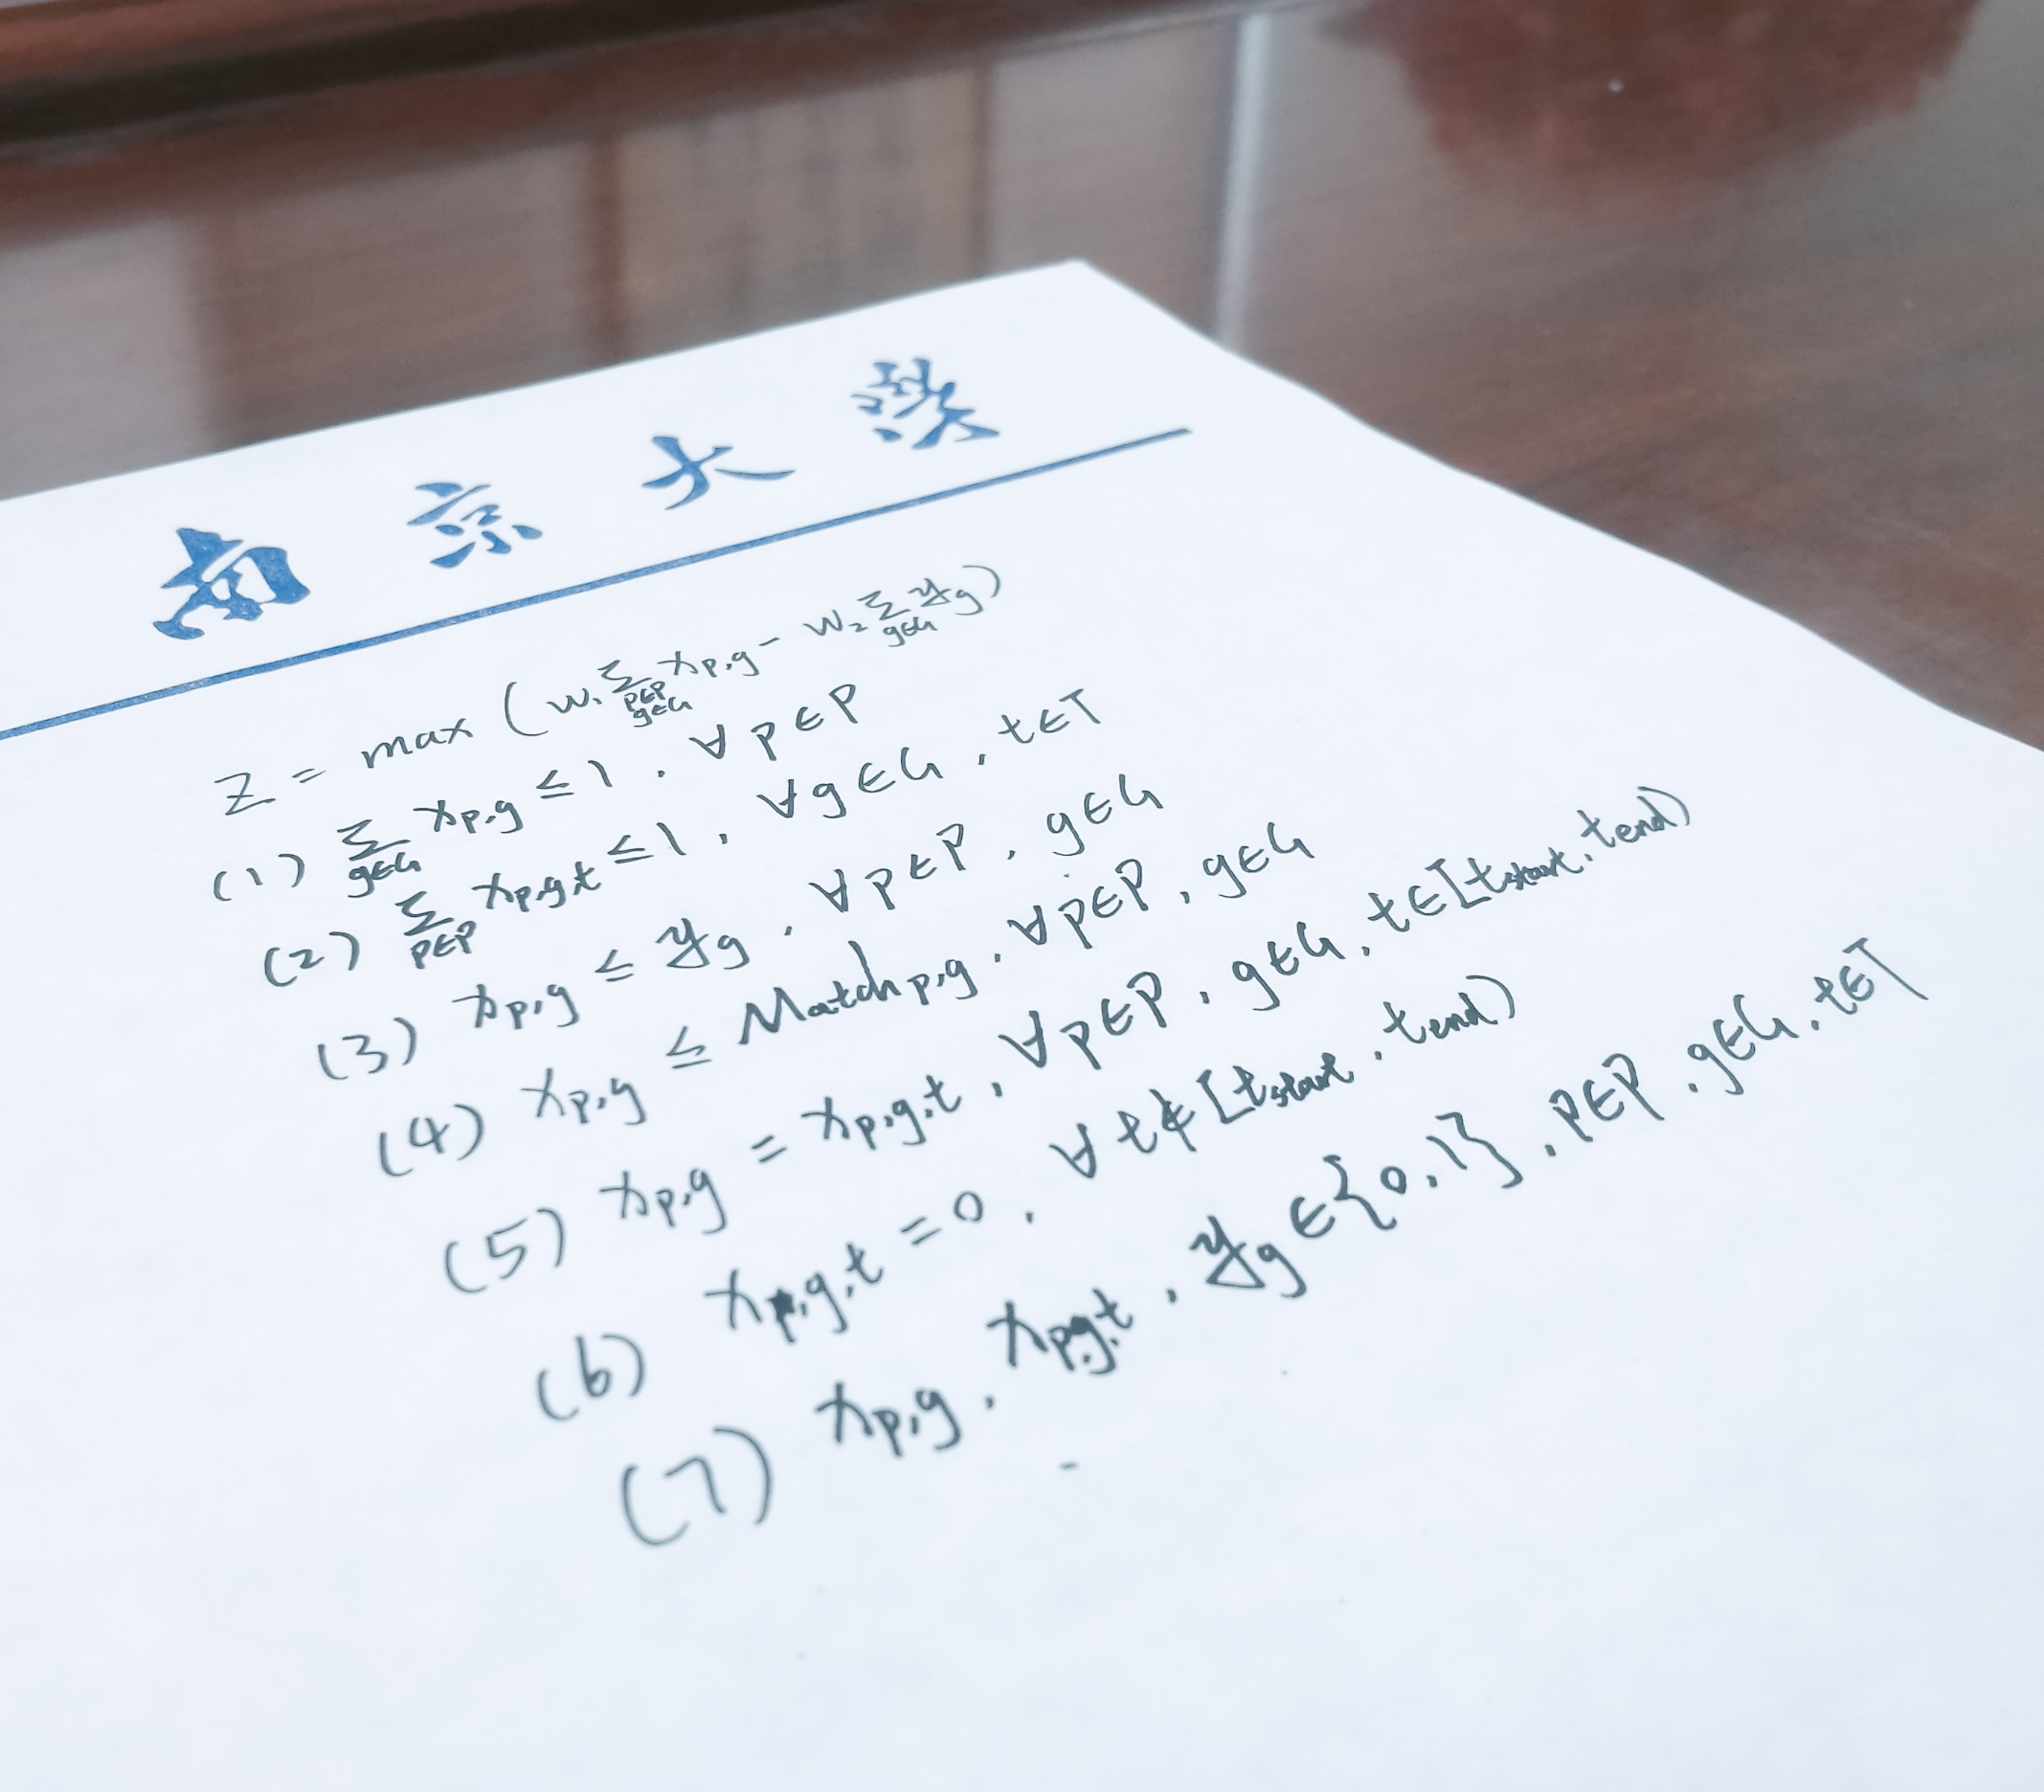 南京大学
Z = max (w₁ ∑_{p∈P, g∈G} x_{p,g} - w₂ ∑_{g∈G} y_g)
(1) ∑_{g∈G} x_{p,g} ≤ 1, ∀ p∈P
(2) ∑_{p∈P} x_{p,g,t} ≤ 1, ∀ g∈G, t∈T
(3) x_{p,g} ≤ y_g, ∀ p∈P, g∈G
(4) x_{p,g} ≤ Match_{p,g}, ∀ p∈P, g∈G
(5) x_{p,g} = x_{p,g,t}, ∀ p∈P, g∈G, t∈[t_{start}, t_{end})
(6) x_{p,g,t} = 0, ∀ t∉[t_{start}, t_{end})
(7) x_{p,g}, x_{p,g,t}, y_g ∈{0,1}, p∈P, g∈G, t∈T